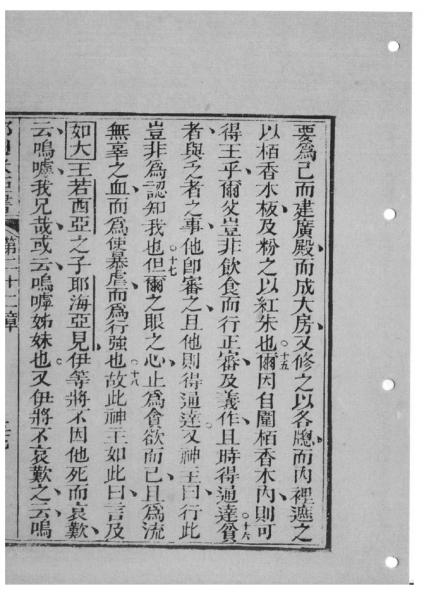 要爲己而建廣殿而成大房又修之以各牕而內裡遮之
以栢香木板及粉之以紅朱也○十五爾因自圍栢香木內則可
得王乎爾父豈非飲食而行正審及義作且時得通達○十六貧
者與乏者之事他卽審之且他則得通達又神王曰行此
豈非爲認知我也○十七但爾之眼之心止爲貪欲而已且爲流
無辜之血而爲使暴虐而爲行強也○十八故此神王如此曰言及
如大王若酉亞之子耶海亞見伊等將不因他死而哀歎
云嗚嘑我兄哉或云嗚嘑姊妹也○又伊將不哀歎之云嗚
第二十二章